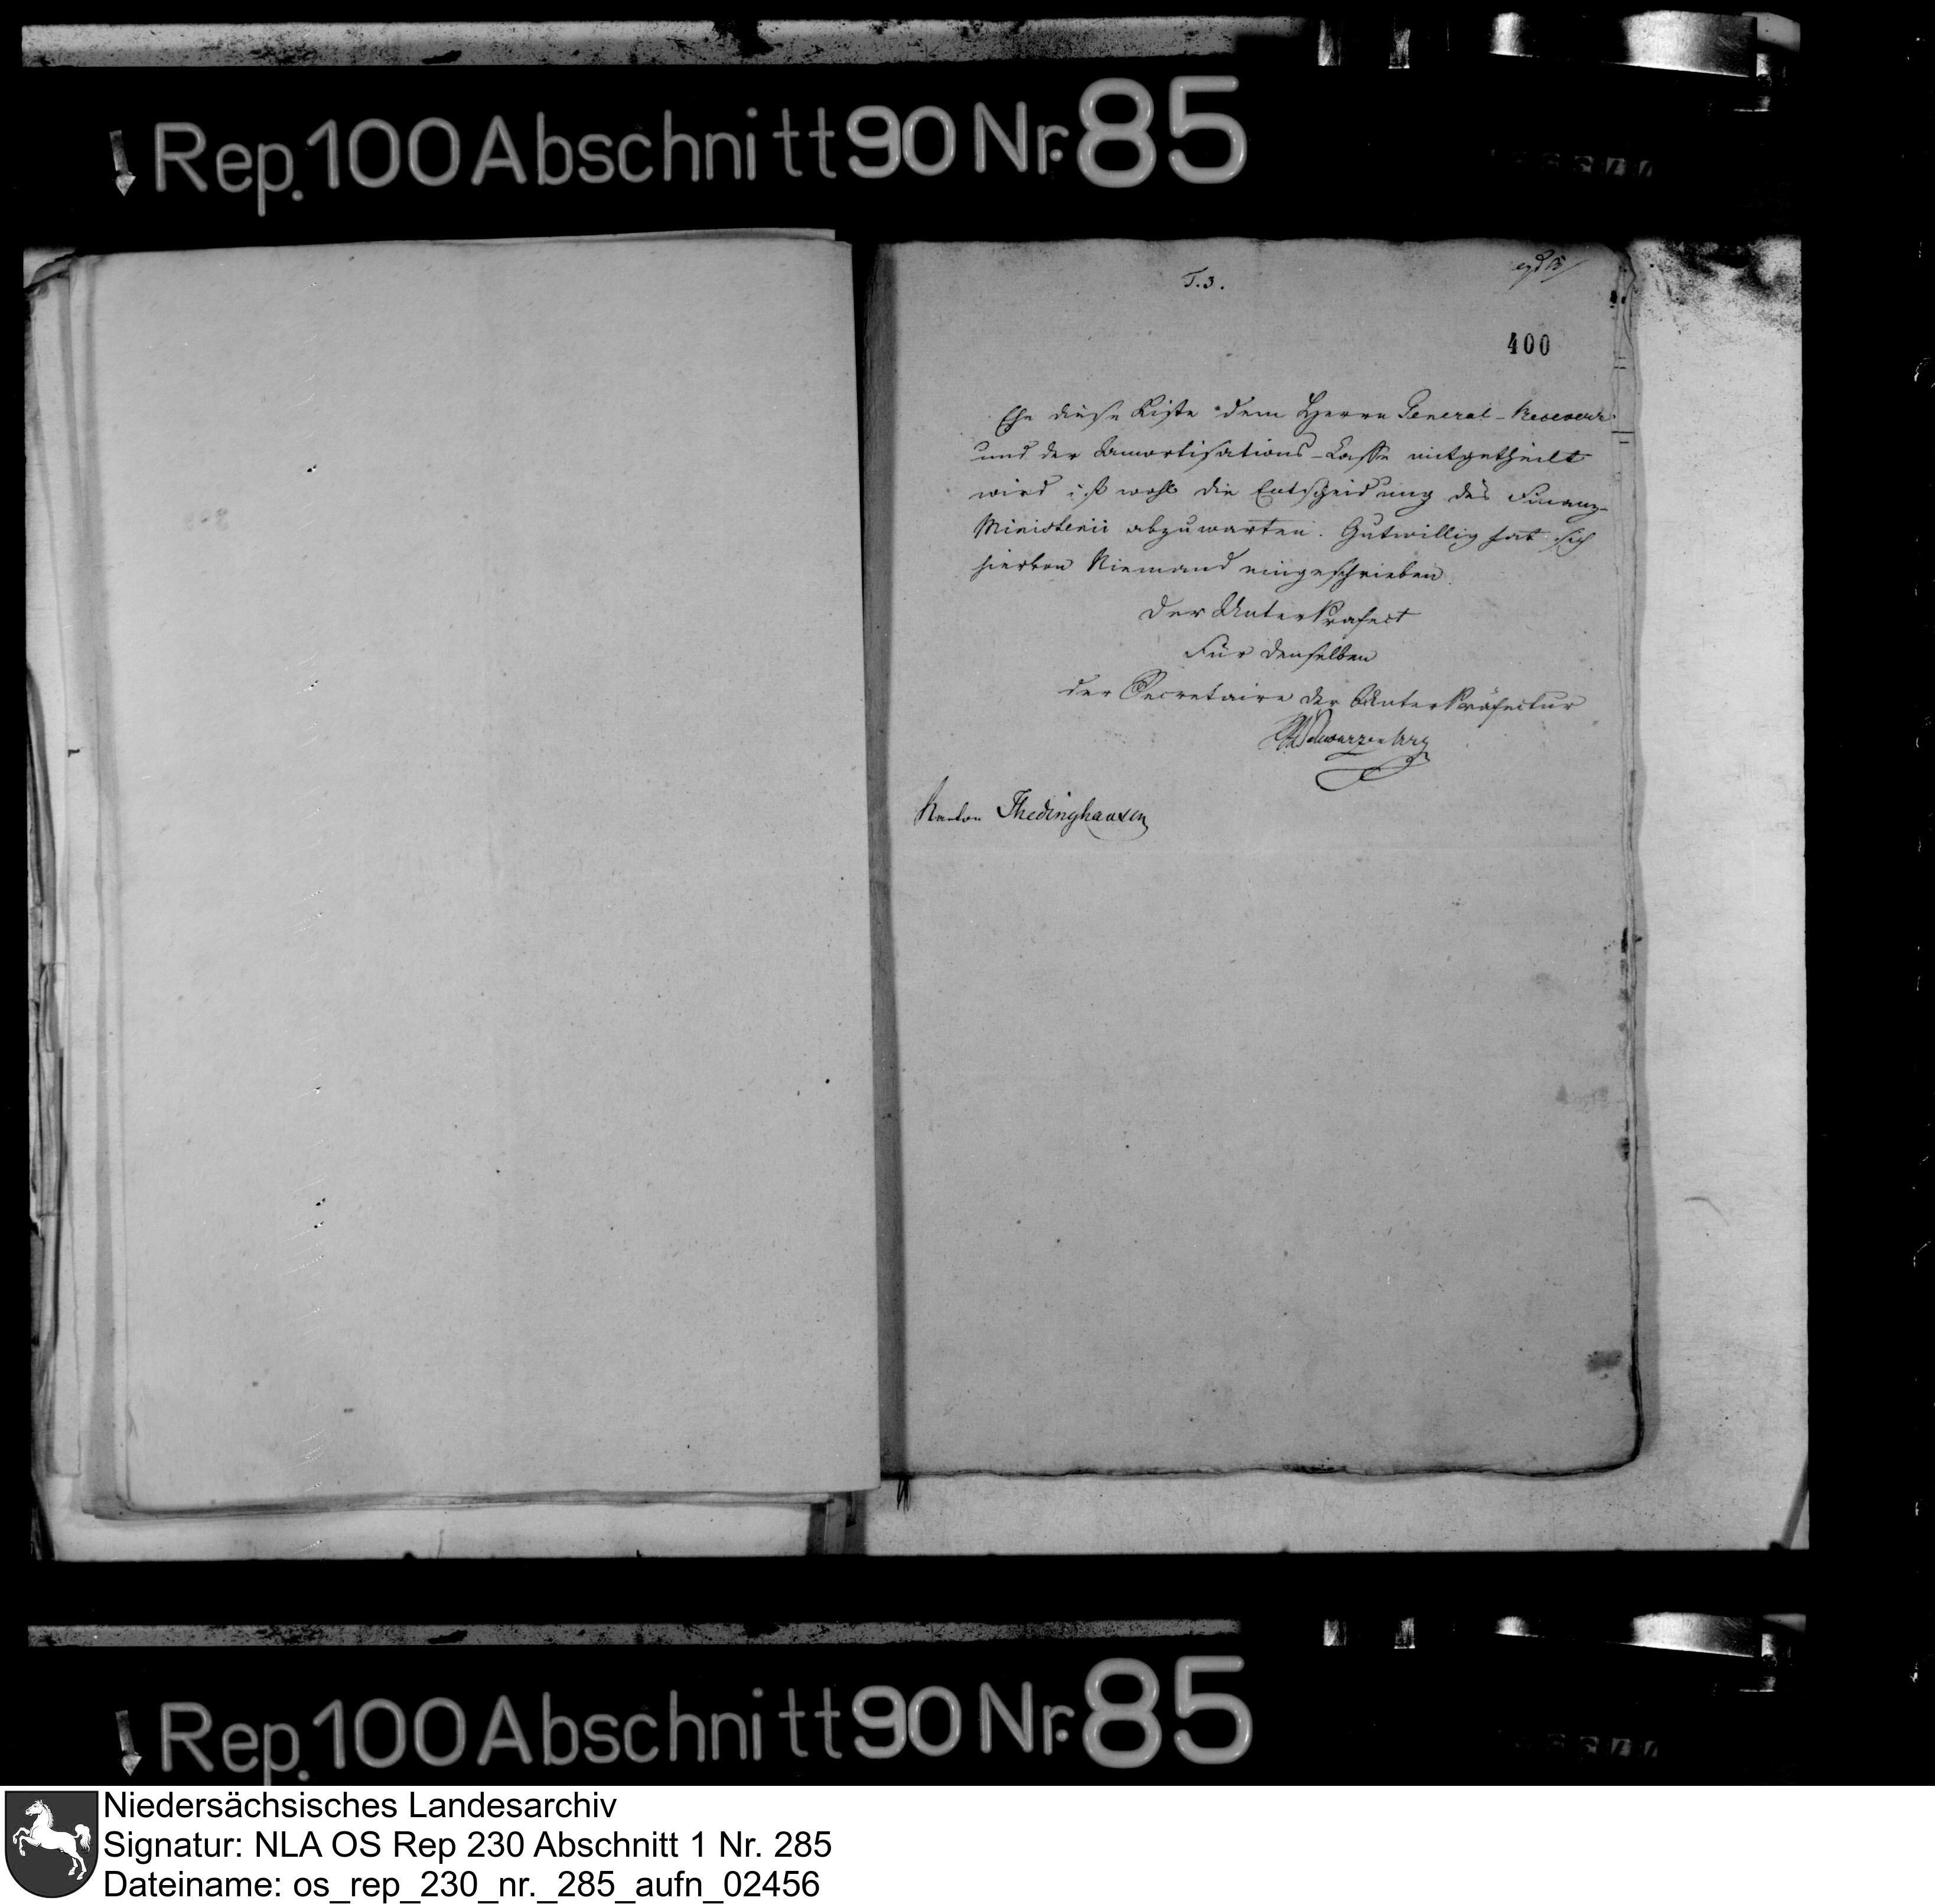 Rep. 100 Abschnitt 90 Nr. 85
T. 3.
400
Ehe diese Liste dem Herrn General-Receveur
und der Amortisations-Casse mitgetheilt
wird ist wohl die Entscheidung des Finanz-
Ministerii abzuwarten. Gutwillig hat sich
hiervon Niemand eingeschrieben.
Der UnterPräfect
Für denselben
der Secretaire der UnterPräfectur
Schwarzenberg
Kanton Thedinghausen
Rep. 100 Abschnitt 90 Nr. 85
Niedersächsisches Landesarchiv
Signatur: NLA OS Rep 230 Abschnitt 1 Nr. 285
Dateiname: os_rep_230_nr._285_aufn_02456